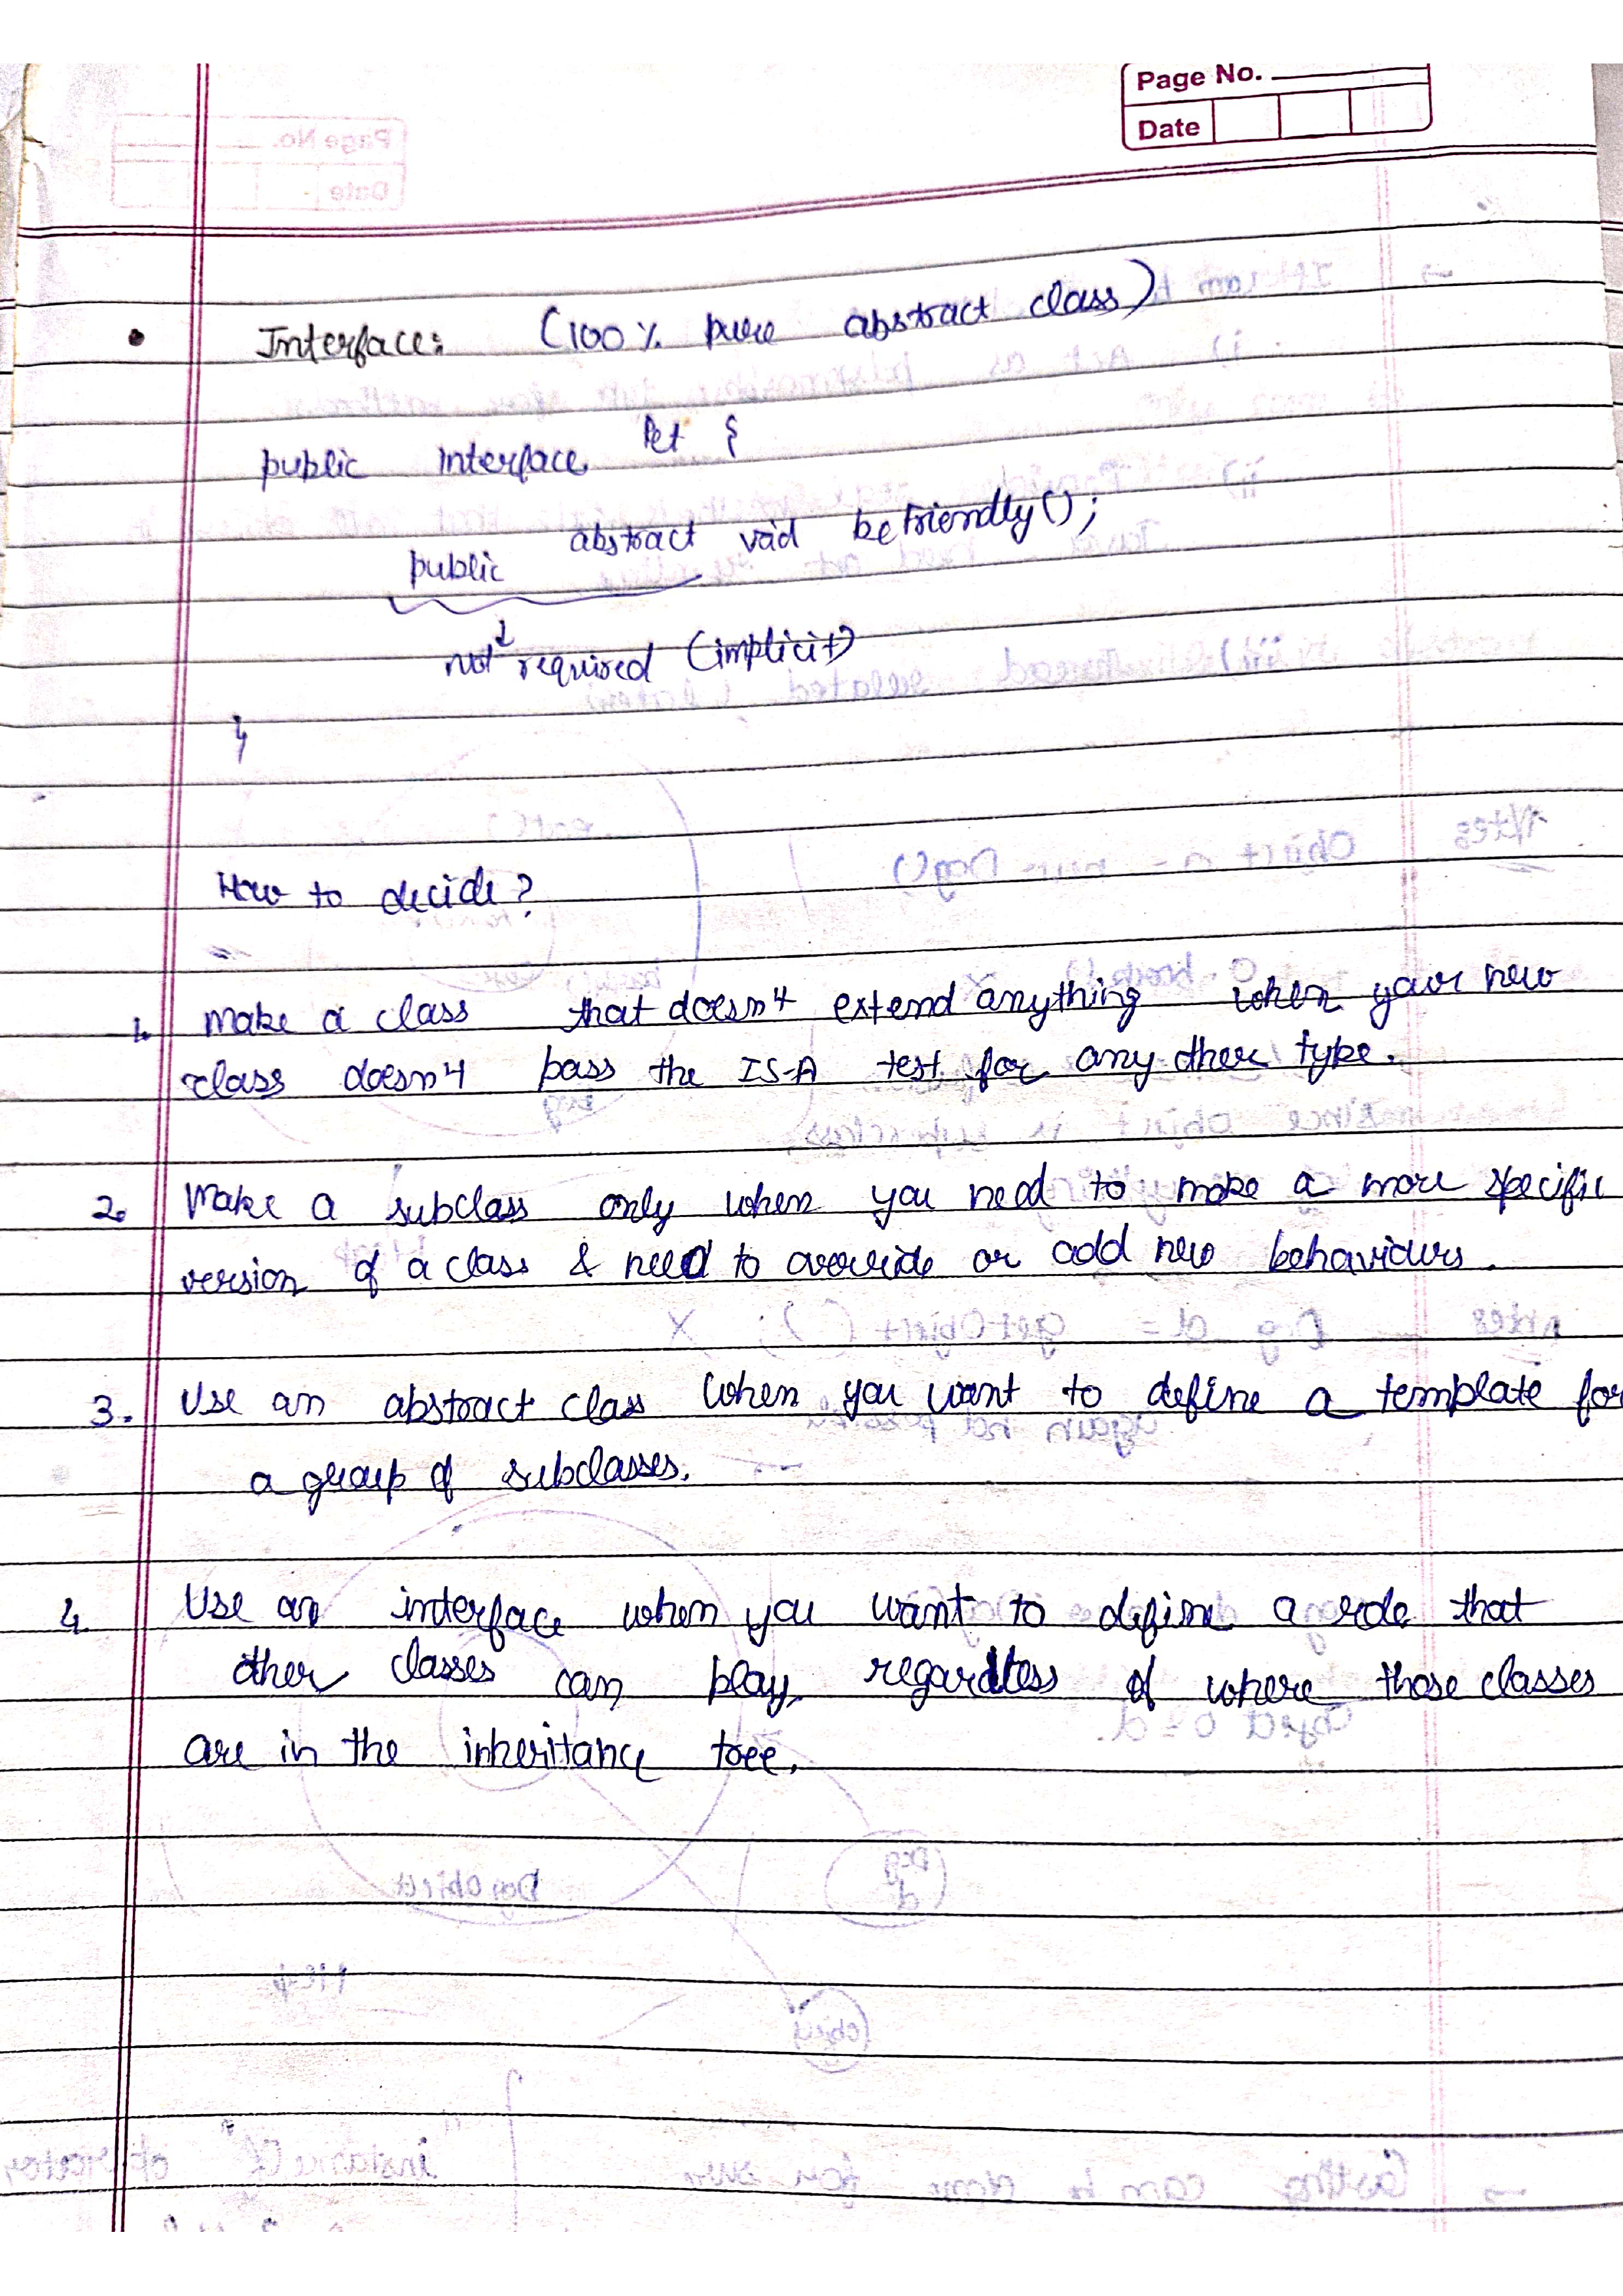 Page No.
Date
• Interface: (100% pure abstract class)
public interface Pet {
public abstract void beFriendly();
↓
not required (implicit)
}
How to decide?
1. Make a class that doesn't extend anything when your new
class doesn't pass the IS-A test for any other type.
2. Make a subclass only when you need to make a more specific
version of a class & need to override or add new behaviours.
3. Use an abstract class when you want to define a template for
a group of subclasses.
4. Use an interface when you want to define a role that
other classes can play, regardless of where those classes
are in the inheritance tree.